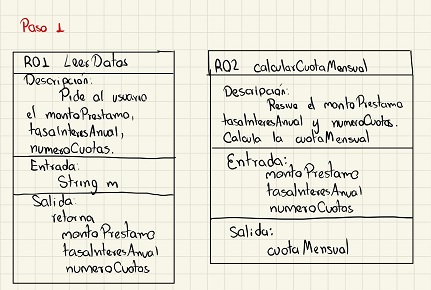 Paso 1
R01 LeerDatos
Descripción:
Pide al usuario
el montoPrestamo,
tasaInteresAnual,
numeroCuotas.
Entrada:
String m
Salida:
retorna
montoPrestamo
tasaInteresAnual
numeroCuotas
R02 calcularCuotaMensual
Descripción:
Resive el montoPrestamo
tasaInteresAnual y numeroCuotas.
Calcula la cuotaMensual
Entrada:
montoPrestamo
tasaInteresAnual
numeroCuotas
Salida:
cuotaMensual